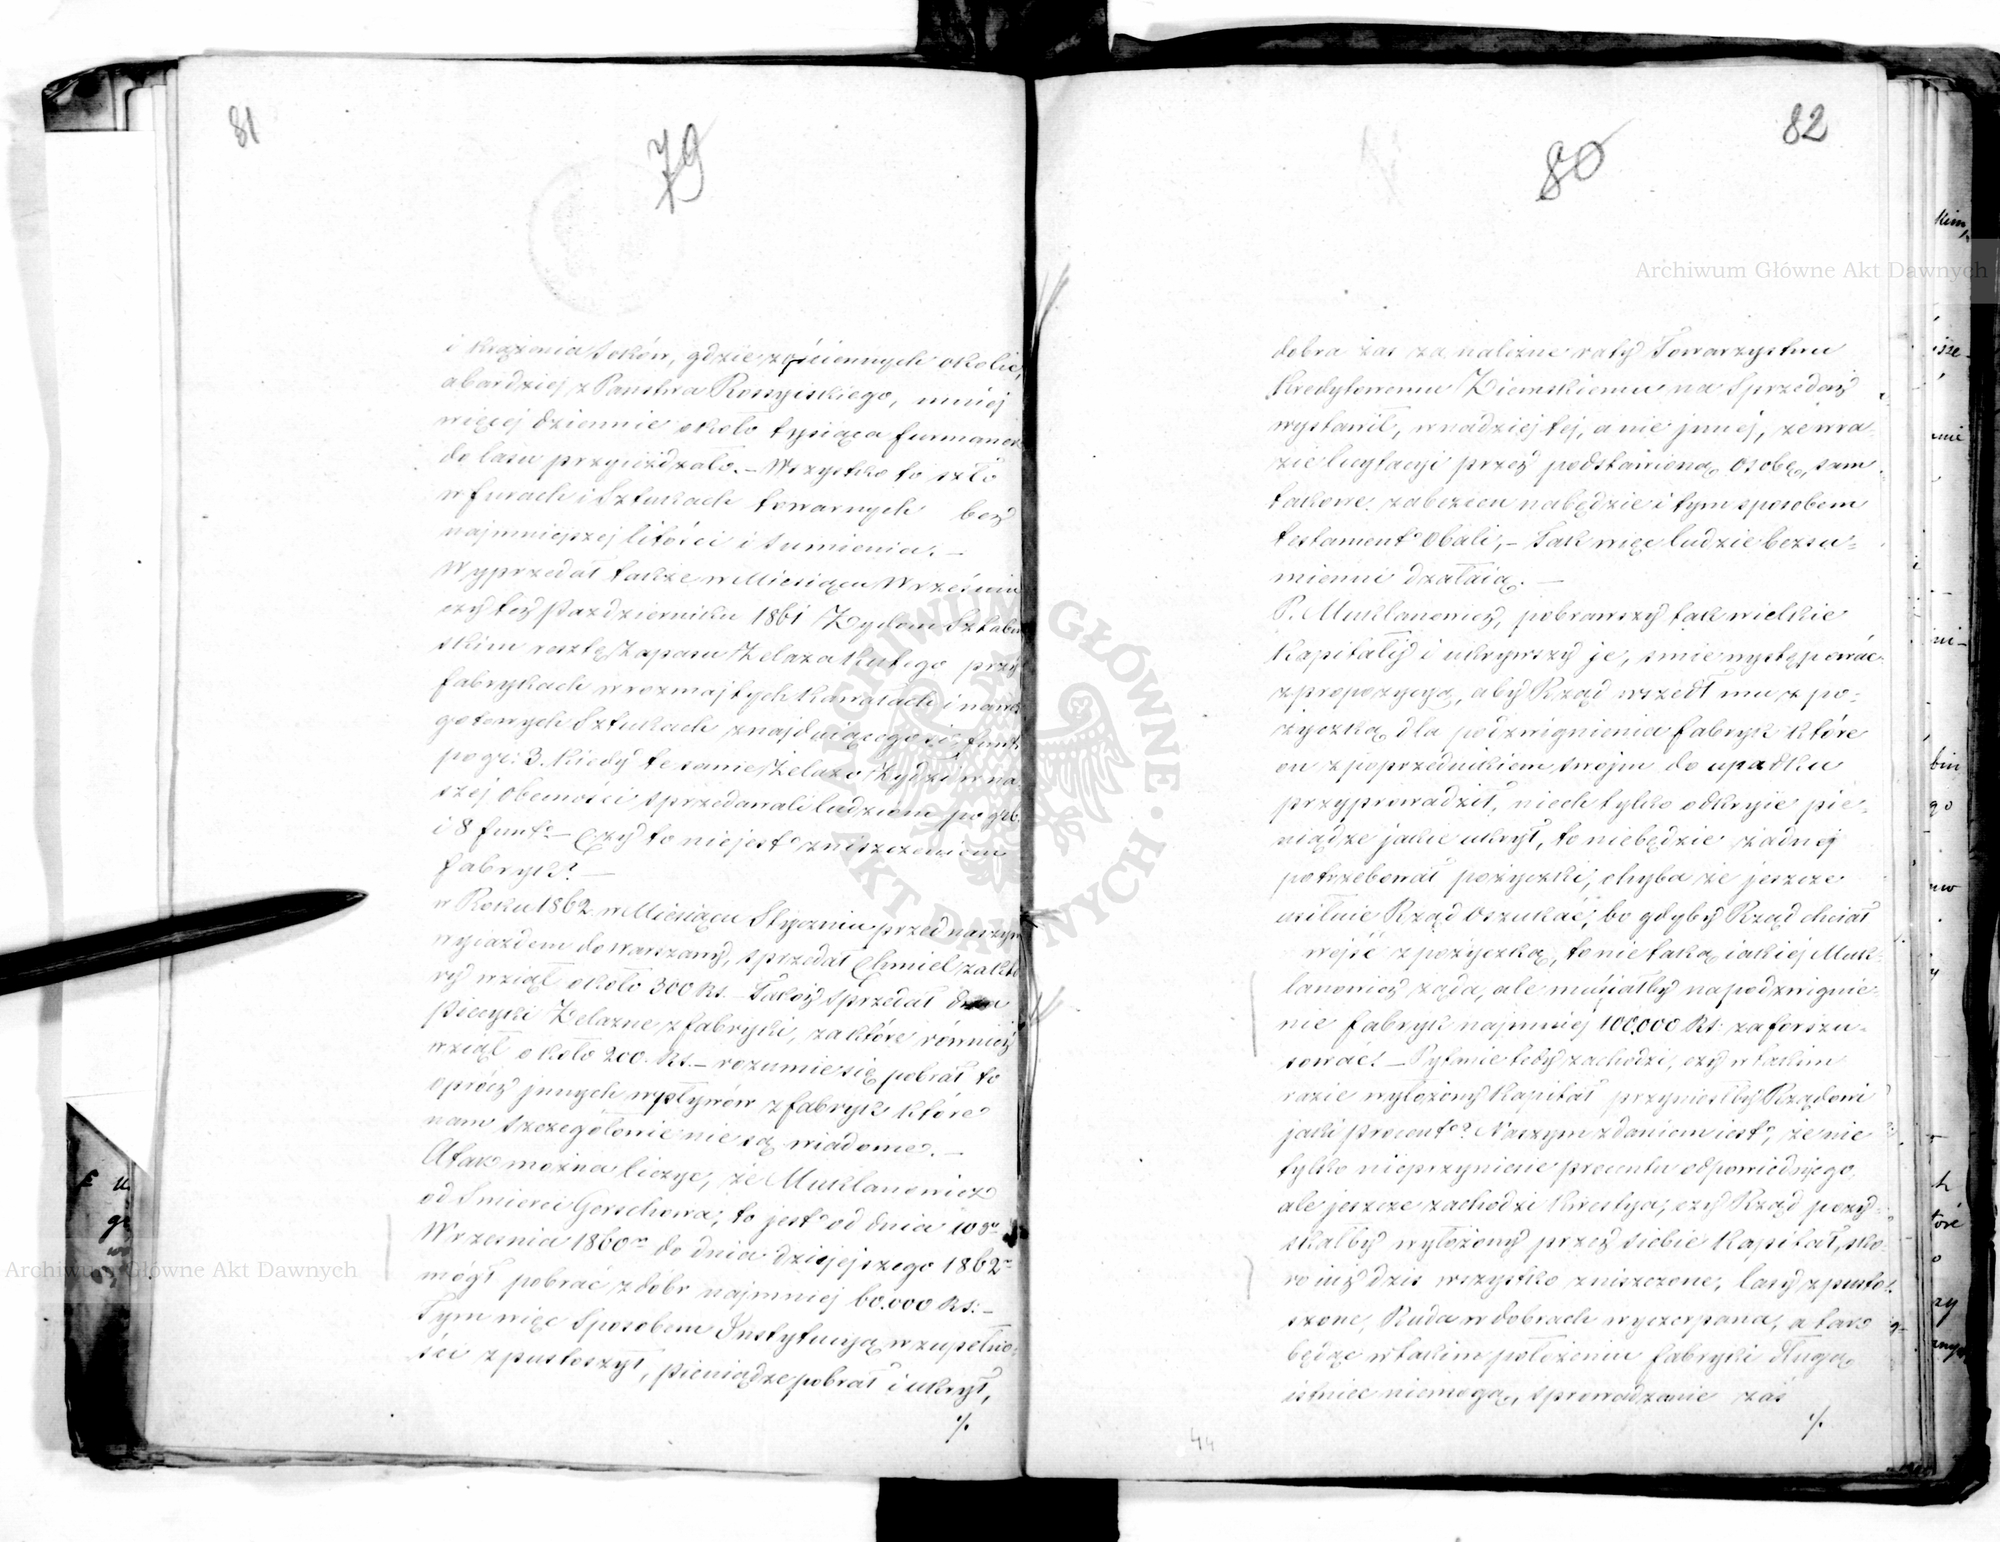 81
79
i krążenia soków, gdzie z ościennych okolic,
a bardziej z Państwa Rossyiskiego, mniej
więcej dziennie około tysiąca furmanek
do lasu przyieżdzało. – Wszystko to szło
w furach i Sztukach towarnych bez
najmniejszej litości i sumienia. –
Wyprzedał także w Miesiącu Wrześniu
czy też Pazdzierniku 1861 Żydom Sztabiń
skim resztę Zapasu Żelaza kutego przy
fabrykach w rozmajtych kawałach i nawet
gotowych Sztukach znajdującego się, funt
po gr: 3. kiedy te same Żelazo Żydzi w na
szej obecności sprzedawali ludziom po gr 6.
i 8 funt. – Czyż to niejest zniszczeniem
fabryk? –
w Roku 1862 w Miesiącu Styczniu przed naszym
wyiazdem do Warszawy, sprzedał Chmiel za któ
ry wziął około 300 Rs. – Takoż sprzedał dwa
Piecyki Żelazne z fabryki, za które również
wziął około 200. Rs. – rozumie się pobrał to
oprócz jnnych wpływów z fabryk które
nam szczegółowie nie są wiadome. –
A tak można liczyc, że Mukłanowicz
od Smierci Gerschowa, to jest od dnia 10go
Wrzesnia 1860ro do dnia dzisjejszego 1862o
mógł pobrać z dóbr najmniej 60.000 Rs: –
Tym więc Sposobem Instytucyą w zupełno-
ści spustoszył, pieniądze pobrał i ukrył,
./.
82
80
dobra zas za należne raty Towarzystwu
Kredytowemu Ziemskiemu na Sprzedaż
wystawił, w nadziej tej, a nie jnnej, że w ra-
zie licytacyi przez podstawioną osobę, sam
takowe zabezcen nabędzie i tym sposobem
testament obali, – Tak więc ludzie bezsu-
mienni działaią. –
P. Mukłanowicz, pobrawszy tak wielkie
Kapitały i ukrywszy je, smie występować
z propozycyą, aby Rząd wszedł mu z po-
życzką dla podzwignienia fabryk które
on z poprzednikiem swojm do upadku
przyprowadził, niech tylko odkryie pie-
niądze jakie ukrył, to niebędzie żadnej
potrzebował pożyczki, chyba że jeszcze
usilnie Rząd oszukać, bo gdyby Rząd chciał
wejść z pożyczką, to nie taką iakiej Muk-
łanowicz żąda, ale musiałby na podzwignie-
nie fabryk najmniej 100.000 Rs. zaforszu-
sować. – Pytanie tedy zachodzi, czy w takim
razie wyłożony Kapitał przyniosłby Rządowi
jaki procent? Naszym zdaniem iest, że nie
tylko nieprzyniesie procentu odpowiednjego,
ale jeszcze zachodzi kwestya, czy Rząd pozy-
skałby wyłożony przez siebie Kapitał, sko-
ro iuż dzis wszystko zniszczone, lasy spusto-
szone, Ruda w dobrach wyczerpana, a tak
będąc w takim położeniu fabryki długo
istniec niemogą, sprowadzanie zaś
./.
44
Archiwum Główne Akt Dawnych
Archiwum Główne Akt Dawnych
ARCHIWUM GŁÓWNE AKT DAWNYCH